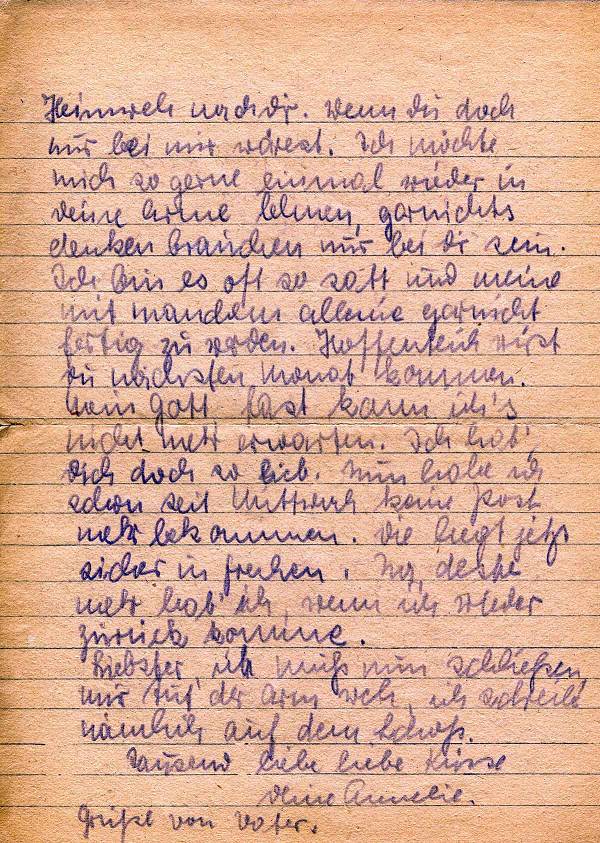 Heimweh nach dir. Wenn du doch
nur bei mir wärest. Ich möchte
mich so gerne einmal wieder in
deine Arme lehnen, garnichts
denken brauchen nur bei dir sein.
Ich bin es oft so satt und meine
mit manchem alleine garnicht
fertig zu werden. Hoffentlich wirst
du nächsten Monat kommen.
Mein Gott fast kann ich's
nicht mehr erwarten. Ich hab'
dich doch so lieb. Nun habe ich
schon seit Mittwoch keine Post
mehr bekommen. Die liegt jetzt
sicher in Frechen. Na, desto
mehr hab' ich, wenn ich wieder
zurück komme.
Liebster, ich muß nun schließen,
mir tut der Arm weh, ich schreibe
nämlich auf dem Schoß.
Tausend liebe liebe Küsse
deine Annelie.
Grüße von Vater.